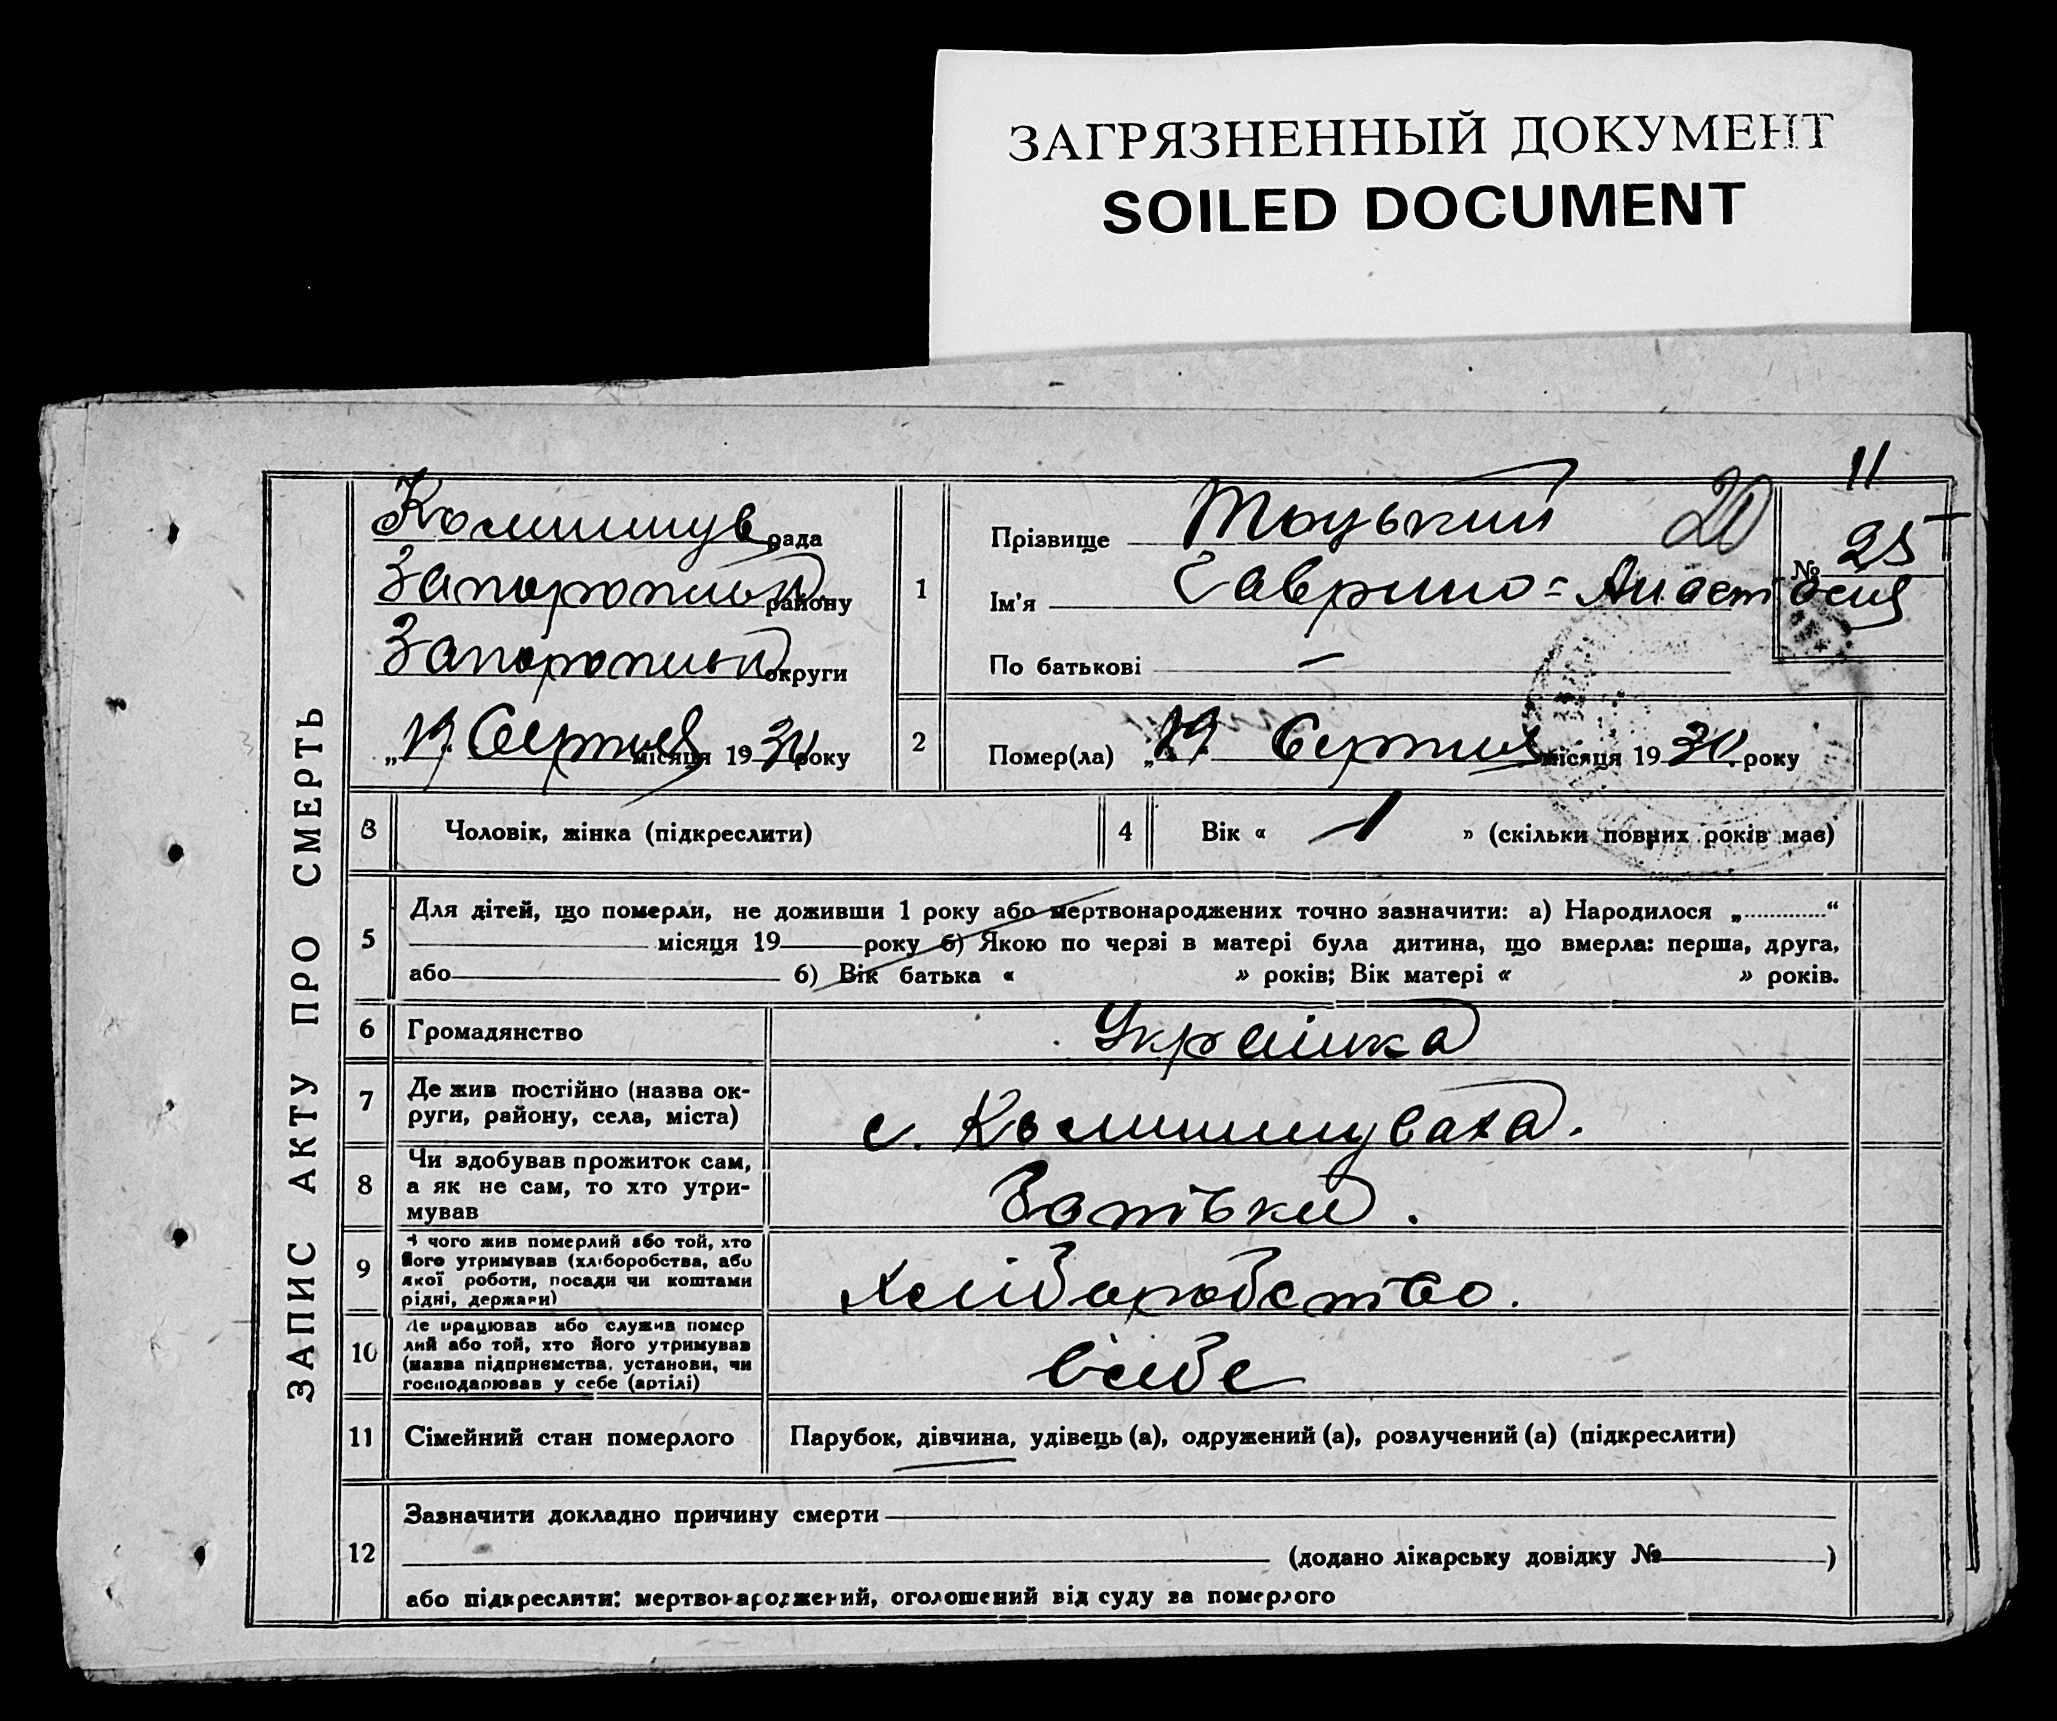 ЗАГРЯЗНЕННЫЙ ДОКУМЕНТ
SOILED DOCUMENT
11
ЗАПИС АКТУ ПРО СМЕРТЬ
Комишув рада
району
округи
„19 Серпня місяця 1930 року
1 Прізвище
20
№ 25
Ім'я Анастасия
По батькові —
2 Помер(ла) „19 Серпня місяця 1930 року
3 Чоловік, жінка (підкреслити)
4 Вік « 1 » (скільки повних років має)
5 Для дітей, що померли, не доживши 1 року або мертвонароджених точно зазначити: а) Народилося „.............“
місяця 19 року б) Якою по черзі в матері була дитина, що вмерла: перша, друга,
або б) Вік батька « » років; Вік матері « » років.
6 Громадянство Украінка
7 Де жив постійно (назва ок-
руги, району, села, міста)
с. Комишуваха.
8 Чи здобував прожиток сам,
а як не сам, то хто утри-
мував
Батьки.
9 З чого жив померлий або той, хто
його утримував (хліборобства, або
якої роботи, посади чи коштами
рідні, держави)
хліборобство.
10 Де працював або служив помер
лий або той, хто його утримував
(назва підприємства, установи, чи
господарював у себе (артілі)
в себе
11 Сімейний стан померлого Парубок, дівчина, удівець (а), одружений (а), розлучений (а) (підкреслити)
12 Зазначити докладно причину смерти
(додано лікарську довідку № )
або підкреслити: мертвонароджений, оголошений від суду за померлого